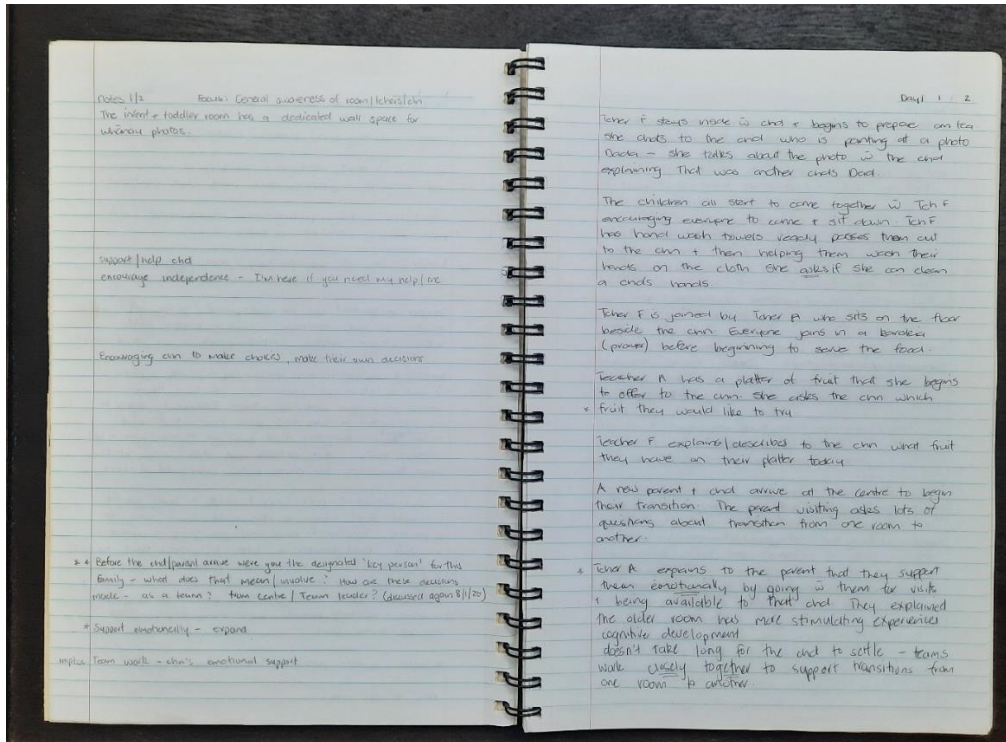 notes 1/2 Focus: General awareness of room/
The infant + toddler room has a dedicated wall space for
whānau photos.
support/help chd
encourage independence - I'm here if you need my help/me
Encouraging chn to make choices, make their own decisions
* * Before the chd/parent arrive were you the designated 'key person' for this
family - what does that mean/involve? How are these decisions
made - as a team? from centre/Team leader? (discussed again 8/1/20)
* Support emotionally - expand
Team work - chn's emotional support
Day 1 1 2
Tcher F stays inside w̄ chd + begins to prepare am tea
she chats to the chd who is pointing at a photo
Dada - she talks about the photo w̄ the chd
explaining That was another chds Dad.
The children all start to come together w̄ Tch F
encouraging everyone to come + sit down. Tch F
has hand wash towels ready passes them out
to the chn + then helping them wash their
hands on the cloth she asks if she can clean
a chds hands.
Tcher F is joined by Tcher A who sits on the floor
beside the chn. Everyone joins in a karakia
(prayer) before beginning to serve the food.
Teacher A has a platter of fruit that she begins
to offer to the chn. She asks the chn which
* fruit they would like to try
Teacher F explains/described to the chn what fruit
they have on their platter today
A new parent + chd arrive at the centre to begin
their transition. The parent visiting asks lots of
questions about transition from one room to
another.
* Tcher A explains to the parent that they support
them emotionally by going w̄ them for visits
+ being available to that chd They explained
the older room has more stimulating experiences
cognitive development
doesn't take long for the chd to settle - teams
work closely together to support transitions from
one room to another.